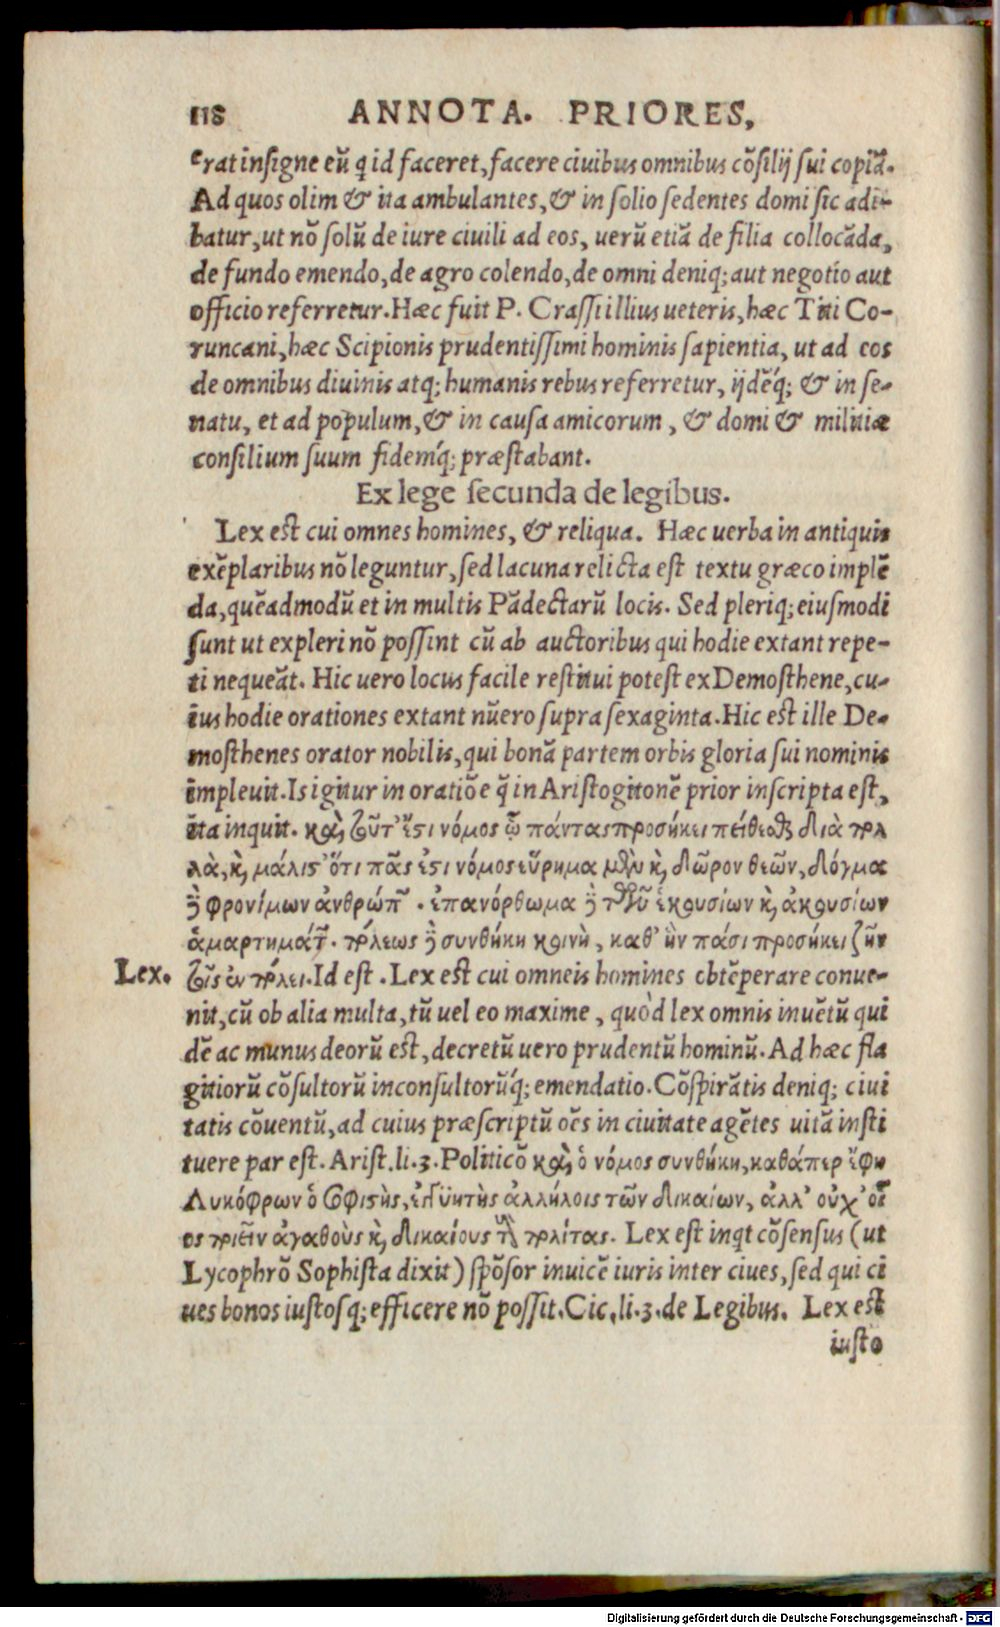 118 ANNOTA. PRIORES,
erat insigne eũ ꝗ id faceret, facere ciuibus omnibus cõsilij sui copiã.
Ad quos olim & ita ambulantes, & in solio sedentes domi sic adi-
batur, ut nõ solũ de iure ciuili ad eos, uerũ etiã de filia collocãda,
de fundo emendo, de agro colendo, de omni deniq; aut negotio aut
officio referretur. Hæc fuit P. Crassi illius ueteris, hæc Titi Co-
runcani, hæc Scipionis prudentissimi hominis sapientia, ut ad eos
de omnibus diuinis atq; humanis rebus referretur, ijdẽq́; & in se-
natu, et ad populum, & in causa amicorum, & domi & militiæ
consilium suum fidemq́; præstabant.
Ex lege secunda de legibus.
Lex est cui omnes homines, & reliqua. Hæc uerba in antiquis
exẽplaribus nõ leguntur, sed lacuna relicta est textu græco implẽ
da, quẽadmodũ et in multis Pãdectarũ locis. Sed pleriq; eiusmodi
sunt ut expleri nõ possint cũ ab auctoribus qui hodie extant repe-
ti nequeãt. Hic uero locus facile restitui potest ex Demosthene, cu-
ius hodie orationes extant nũero supra sexaginta. Hic est ille De-
mosthenes orator nobilis, qui bonã partem orbis gloria sui nominis
impleuit. Is igitur in oratiõe q̃ in Aristogitonẽ prior inscripta est,
ita inquit. καὶ τοῦτ' ἔστι νόμος ᾧ πάντας προσήκει πείθεσθαι διὰ πολ
λὰ, καὶ μάλιστ' ὅτι πᾶς ἐστι νόμος εὕρημα μὲν καὶ δῶρον θεῶν, δόγμα
δὲ φρονίμων ἀνθρώπων. ἐπανόρθωμα δὲ τῶν ἑκουσίων καὶ ἀκουσίων
ἁμαρτημάτων. πόλεως δὲ συνθήκη κοινὴ, καθ' ἣν πᾶσι προσήκει ζῆν
Lex. τοῖς ἐν πόλει. Id est. Lex est cui omneis homines obtẽperare conue-
nit, cũ ob alia multa, tũ uel eo maxime, quòd lex omnis inuẽtũ qui
dẽ ac munus deorũ est, decretũ uero prudentũ hominũ. Ad hæc fla
gitiorũ cõsultorũ inconsultorũq́; emendatio. Cõspirãtis deniq; ciui
tatis cõuentũ, ad cuius præscriptũ oẽs in ciuitate agẽtes uitã insti
tuere par est. Arist. li. 3. Politicõ καὶ ὁ νόμος συνθήκη, καθάπερ ἔφη
Λυκόφρων ὁ σοφιστὴς, ἐγγυητὴς ἀλλήλοις τῶν δικαίων, ἀλλ' οὐχ' οἷ
ος ποιεῖν ἀγαθοὺς καὶ δικαίους τοὺς πολίτας. Lex est inq̃t cõsensus (ut
Lycophrõ Sophista dixit) spõsor inuicẽ iuris inter ciues, sed qui ci
ues bonos iustosq; efficere nõ possit. Cic. li. 3. de Legibus. Lex est
iusto
Digitalisierung gefördert durch die Deutsche Forschungsgemeinschaft - DFG